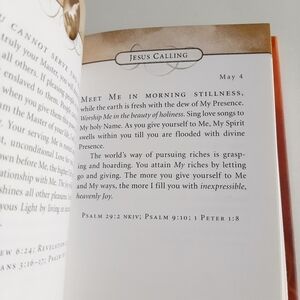 CANNOT SERVE
truly your Master, you
all others. If pleasing
enslaved to them. People
when you give them
Master of your
Your serving Me
unconditional Love for
before Me, the higher
shines all other pleasures
ous Light by living in
6:24; REVELATION
3:16–17; PSALM
JESUS CALLING
May 4
MEET ME IN MORNING STILLNESS,
while the earth is fresh with the dew of My Presence.
Worship Me in the beauty of holiness. Sing love songs to
My holy Name. As you give yourself to Me, My Spirit
swells within you till you are flooded with divine
Presence.
The world's way of pursuing riches is grasp-
ing and hoarding. You attain My riches by letting
go and giving. The more you give yourself to Me
and My ways, the more I fill you with inexpressible,
heavenly Joy.
PSALM 29:2 NKJV; PSALM 9:10; 1 PETER 1:8